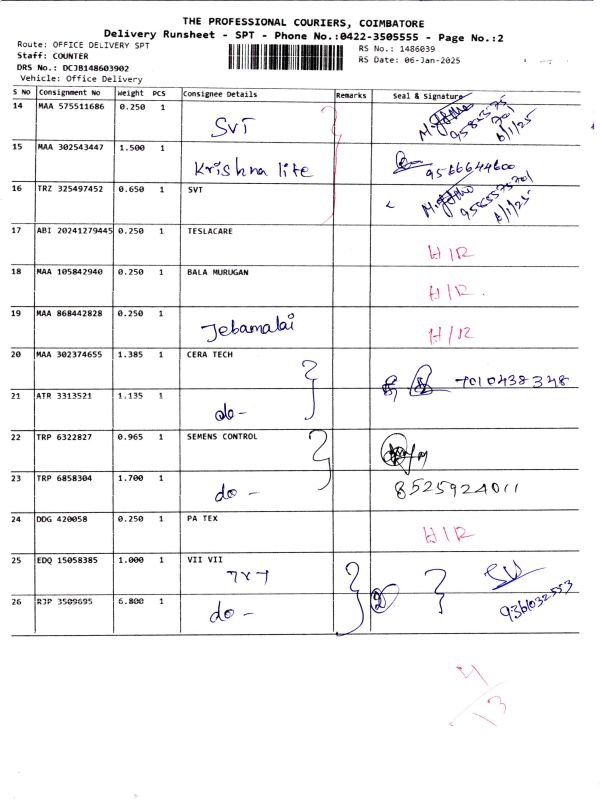 THE PROFESSIONAL COURIERS, COIMBATORE
Delivery Runsheet - SPT - Phone No.:0422-3505555 - Page No.:2
Route: OFFICE DELIVERY SPT
RS No.: 1486039
Staff: COUNTER
RS Date: 06-Jan-2025
DRS No.: DCJB148603902
Vehicle: Office Delivery
S No Consignment No Weight PCS Consignee Details Remarks Seal & Signature
14 MAA 575511686 0.250 1
SVT
6/1/25
15 MAA 302543447 1.500 1
Krishna lite 9566644600
16 TRZ 325497452 0.650 1 SVT
6/1/25
17 ABI 20241279445 0.250 1 TESLACARE
H/R
18 MAA 105842940 0.250 1 BALA MURUGAN
H/R.
19 MAA 868442828 0.250 1
Jebamalai H/R
20 MAA 302374655 1.385 1 CERA TECH
7010438348
21 ATR 3313521 1.135 1
do -
22 TRP 6322827 0.965 1 SEMENS CONTROL
23 TRP 6858304 1.700 1
do - 8525924011
24 DDG 420058 0.250 1 PA TEX
H/R
25 EDQ 15058385 1.000 1 VII VII
26 RJP 3509695 6.800 1
do - 2 9361032553
4/13